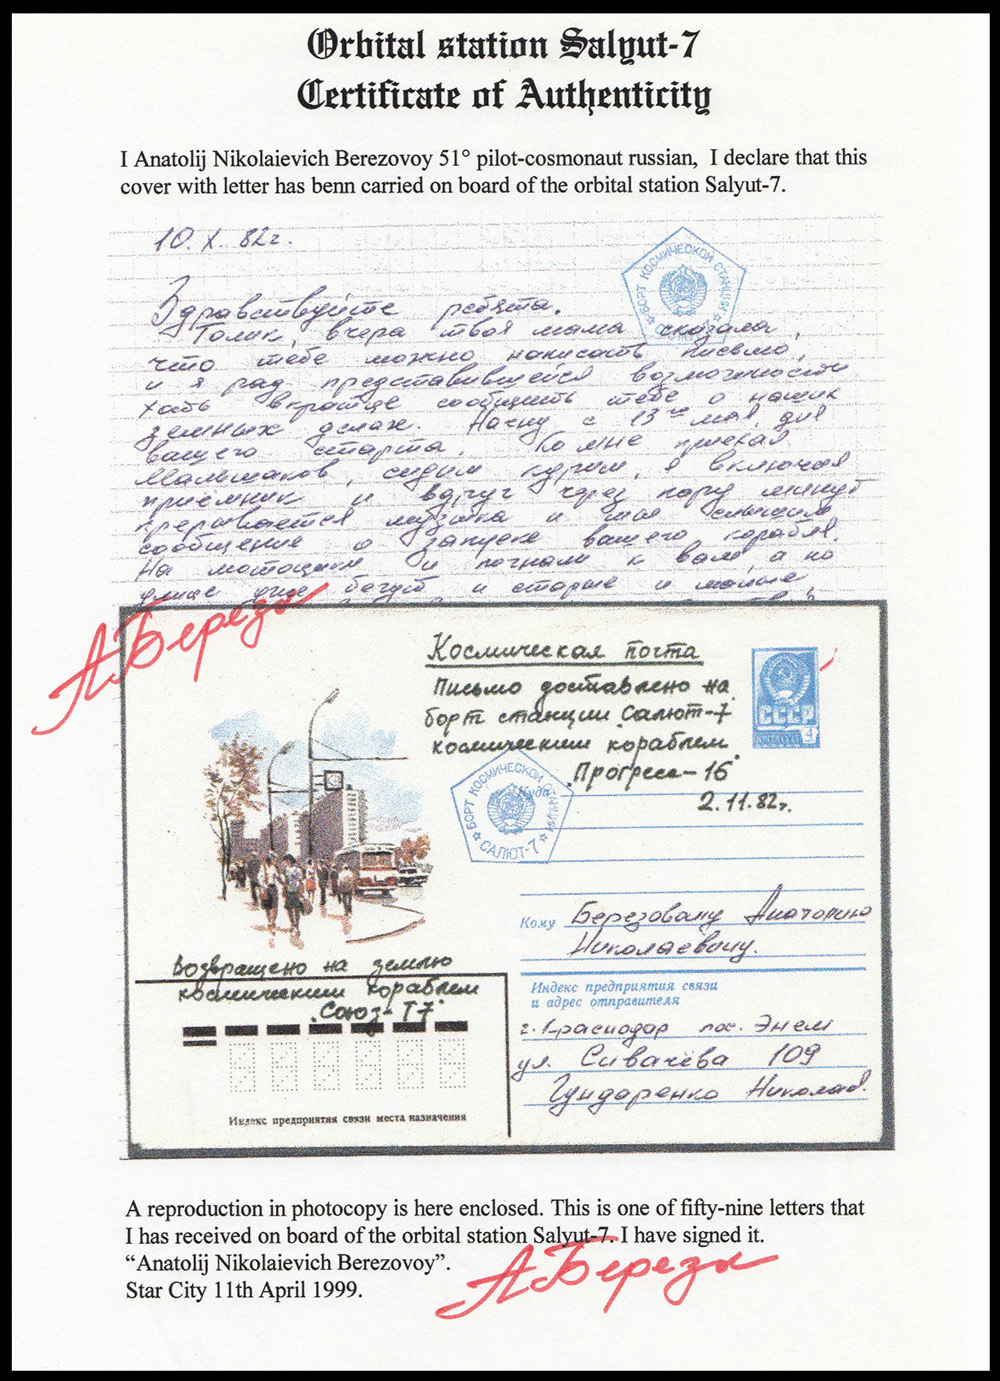 Orbital station Salyut-7
Certificate of Authenticity
I Anatolij Nikolaievich Berezovoy 51° pilot-cosmonaut russian, I declare that this
cover with letter has benn carried on board of the orbital station Salyut-7.
10. X. 82г.
БОРТ КОСМИЧЕСКОЙ СТАНЦИИ
САЛЮТ-7
Здравствуйте ребята.
Толик, вчера твоя мама сказала,
что тебе можно написать письмо,
и я рад представившейся возможности
хоть вкратце сообщить тебе о наших
земных делах. Начну с 13го мая, дня
вашего старта. Ко мне приехал
Мальшаков, сидим курим, я включил
приёмник и вдруг через пару минут
прерывается музыка и мы слышим
сообщение о запуске вашего корабля.
На мотоцикл и погнали к вам, а по
улице уже бегут и старые и малые,
А.Березо
Космическая почта
Письмо доставлено на
борт станции "Салют-7
космическим кораблем
"Прогресс-16"
2.11.82г.
СССР
ПОЧТА
4
БОРТ КОСМИЧЕСКОЙ СТАНЦИИ
САЛЮТ-7
Куда
Кому Березовому Анатолию
Николаевичу.
Возвращено на землю
космическим кораблем
"Союз-Т7"
Индекс предприятия связи
и адрес отправителя
г. Краснодар пос. Энем
ул. Сивачёва 109
Гундаренко Николай.
Индекс предприятия связи места назначения
A reproduction in photocopy is here enclosed. This is one of fifty-nine letters that
I has received on board of the orbital station Salyut-7. I have signed it.
“Anatolij Nikolaievich Berezovoy”.
Star City 11th April 1999.
А.Березо